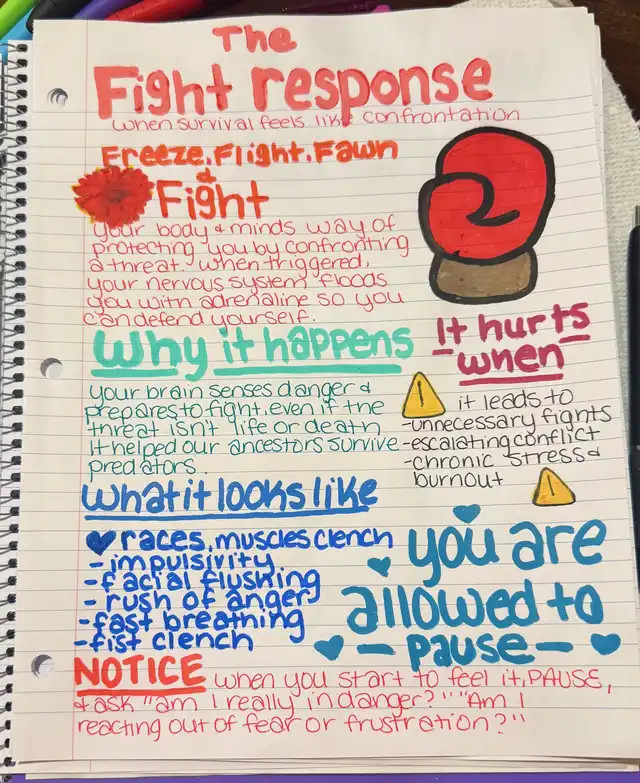 The
Fight response
when survival feels like confrontation
Freeze, Flight, Fawn
&
Fight
your body & minds way of
protecting you by confronting
a threat. when triggered,
your nervous system floods
you with adrenaline so you
can defend yourself.
why it happens
your brain senses danger &
prepares to fight, even if the
threat isn't life or death
it helped our ancestors survive
predators.
It hurts
when
! it leads to
-unnecessary fights
-escalating conflict
-chronic stress &
burnout !
what it looks like
races, muscles clench
- impulsivity
- facial flushing
- rush of anger
-fast breathing
-fist clench
you are
allowed to
- pause -
NOTICE when you start to feel it, PAUSE,
& ask "am I really in danger?" "Am I
reacting out of fear or frustration?"